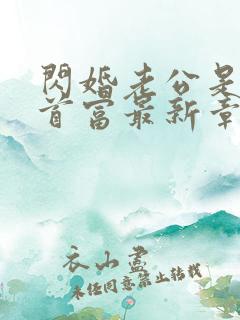 閃婚老公是
首富最新章
衣山盡
未经同意禁止转载